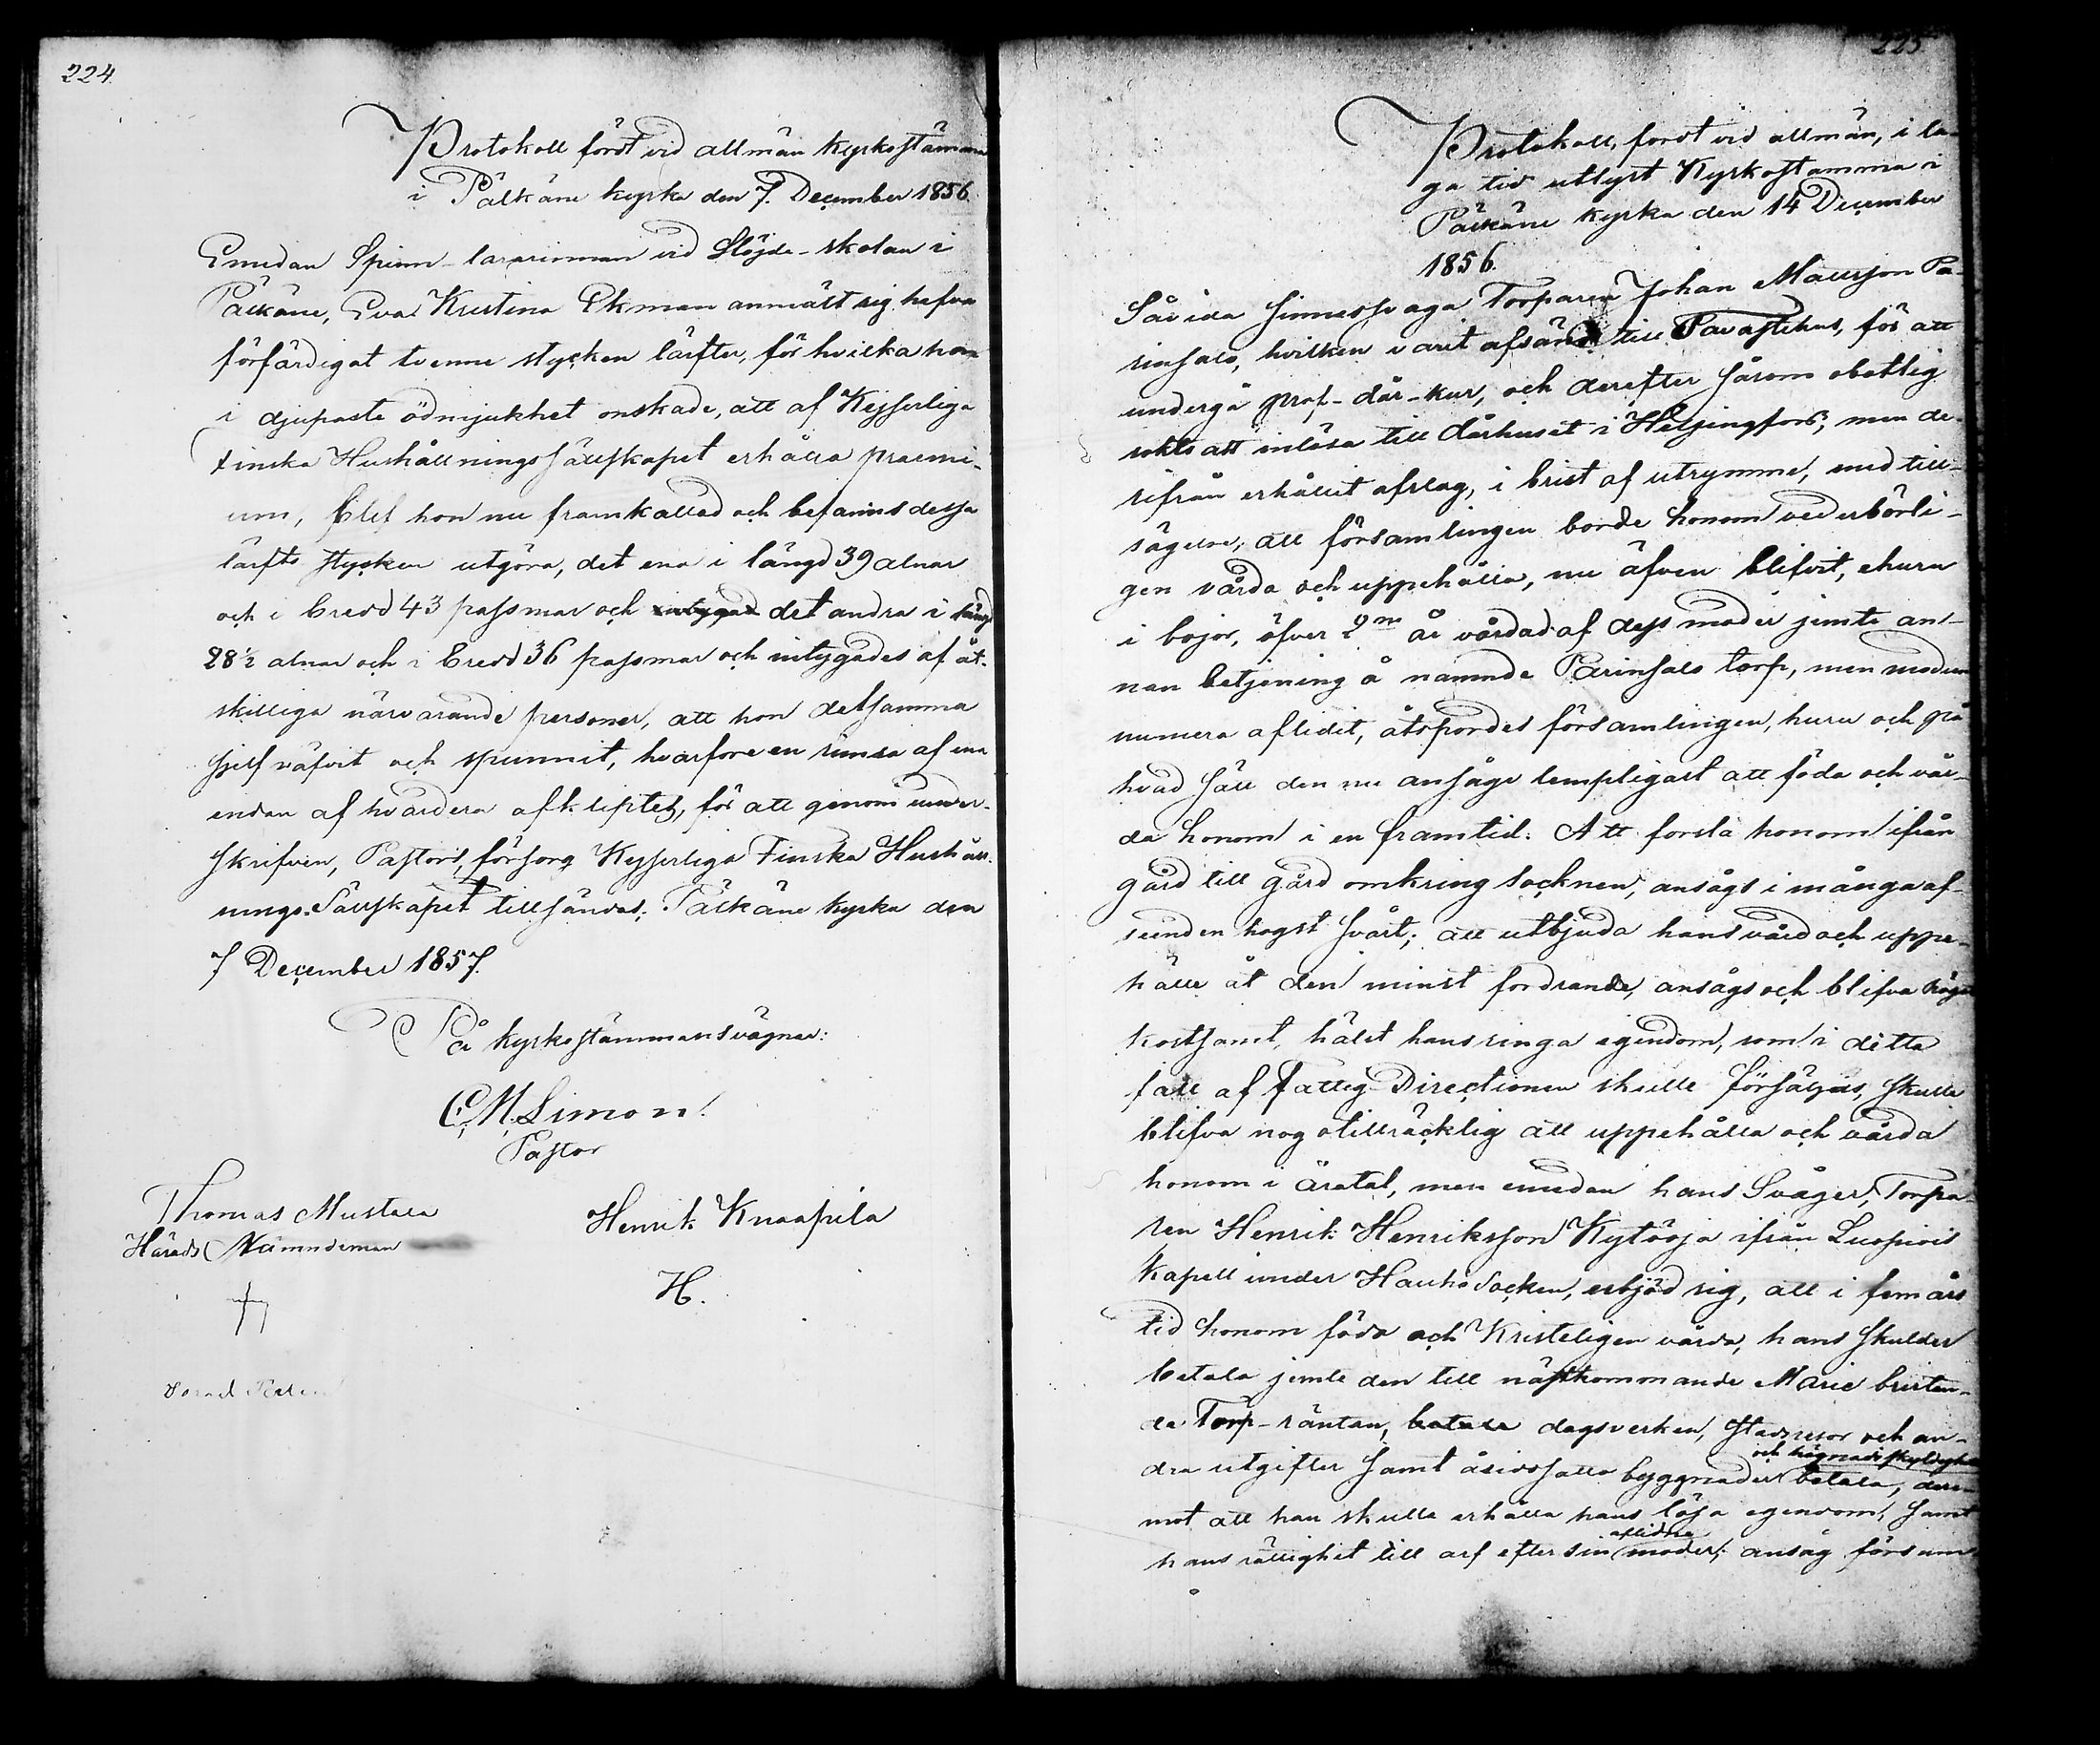 224.
Protokoll fördt vid allmän Kyrkostämma
i Pälkäne kyrka den 7. December 1856.
Emedan Spinn-lärarinnan vid Slöjde-skolan i
Pälkäne, Eva Kristina Ekman anmält sig hafva
förfärdigat tvenne stycken lärfter, för hvilka hon
i djupaste ödmjukhet önskade, att af Kejserliga
Finska Hushållnings Sällskapet erhålla praemi-
um, blef hon nu framkallad och befanns dessa
lärfts stycken utgöra, det ena i längd 39 alnar
och i bredd 43 passmar och intygad det andra i längd
28 1/2 alnar och i bredd 36 passmar och intygades af åt-
skilliga närvarande personer, att hon detsamma
sjelf väfvit och spunnit, hvarföre en rimsa af ena
endan af hvardera afkliptes, för att genom under-
skrifven, Pastors, försorg Kejserliga Finska Hushåll-
nings Sällskapet tillsändas. Pälkäne kyrka den
7 December 1857.
På kyrkostämmans vägnar:
C. M. Limon.
Pastor
Thomas Mustala
Härads Nämndeman
Henrik Knaapila
H.
225
Protokoll, fördt vid allmän, i la-
ga tid utlyst Kyrkostämma i
Pälkäne kyrka den 14 December
1856.
Såvida sinnessvaga Torparen Johan Mattsson Pa-
rinsalo, hvilken varit afsänd till Tavastehus, för att
undergå prof-dår-kur, och derefter såsom obotlig
sökts att inlösa till dårhuset i Helsingfors; men de-
rifrån erhållit afslag, i brist af utrymme, med till-
sägelse, att församlingen borde honom vederbörli-
gen vårda och uppehålla, nu äfven blifvit, ehuru
i bojor, öfver 2ne år vårdad af dess moder jemte an-
nan betjening å nämnde Parinsalo torp, men modren
numera aflidit, åtspordes församlingen, huru och på
hvad sätt den nu ansåge lempligast att föda och vår-
da honom i en framtid. Att forsla honom ifrån
gård till gård omkring socknen, ansågs i många af-
seenden högst svårt; att utbjuda hans vård och uppe-
hälle åt den minst fordrande, ansågs och blifva högst
kostsamt, hälst hans ringa egendom, som i detta
fall af Fattig Directionen skulle försäljas, skulle
blifva nog otillräcklig att uppehålla och vårda
honom i åratal, men emedan hans Svåger, Torpa-
ren Henrik Henriksson Kytöoja ifrån Luopiois
Kapell under Hauho Socken, erbjöd sig, att i fem års
tid honom föda och Kristeligen vårda, hans skulder
betala jemte den till nästkommande Marie bristan-
de Torp-räntan, betala dagsverken, stadsresor och an-
och hägnadsskyldighet
dra utgifter samt åsidosatta byggnader betala, dere-
mot att han skulle erhålla hans lösa egendom, samt
aflidna
hans rättighet till arf efter sin moder; ansåg försam-